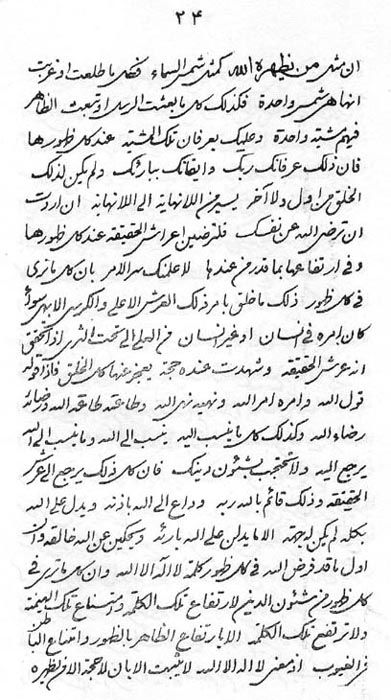 ٢٤
ان مثل من يظهره الله كمثل شمس السماء فكل ما طلعت او غربت
انها هى شمس واحدة فكذلك كل ما بعثت الرسل او تبعث الظاهر
فيهم مشية واحدة و عليك بعرفان تلك المشية عند كل ظهورها
فان ذلك عرفانك ربك و ايقانك ببارئك و لم يكن لذلك
الخلق من اول و لا آخر يسير من اللانهاية الى اللانهاية ان اردت
ان ترضى الله عن نفسك فلترضين اعراش الحقيقة عند كل ظهورها
و فى ارتفاعها بما قدر من عندها لاعلمنك سر الامر بان كل ما ترى
فى كل ظهور ذلك ما خلق بامر ذلك العرش الاعلى و الكرسى الابهى سواء
كان امره فى انسان او غير انسان من العلى الى تحت الثرى اذا تحقق
انه عرش الحقيقة و شهدت عنده حجة يعجز عنها كل الخلق فاذا قوله
قول الله و امره امر الله و نهيه نهى الله و طاعته طاعة الله و رضائه
رضاء الله و كذلك كل ما ينسب اليه ينسب الى الله و ما ينسب الى الله
يرجع اليه و لا تحتجب بشئون دينك فان كل ذلك يرجع الى عرش
الحقيقة و ذلك قائم بالله ربه و داع الى الله باذنه و يدل على الله
بكله لم يكن له جهة الا ما يدلن على الله بارئه و يحكين عن الله خالقه و ان
اول ما قد فرض الله فى كل ظهور كلمة لا اله الا الله و ان كل ما ترى فى
كل ظهور من شئون الدين لارتفاع تلك الكلمة و امتناع تلك
و لا ترتفع تلك الكلمة الا بارتفاع الظاهر بالظهور و امتناع الباطن
فى الغيوب اذ معنى لا اله الا الله لا يثبت الا بان لا حجة الا من يظهره